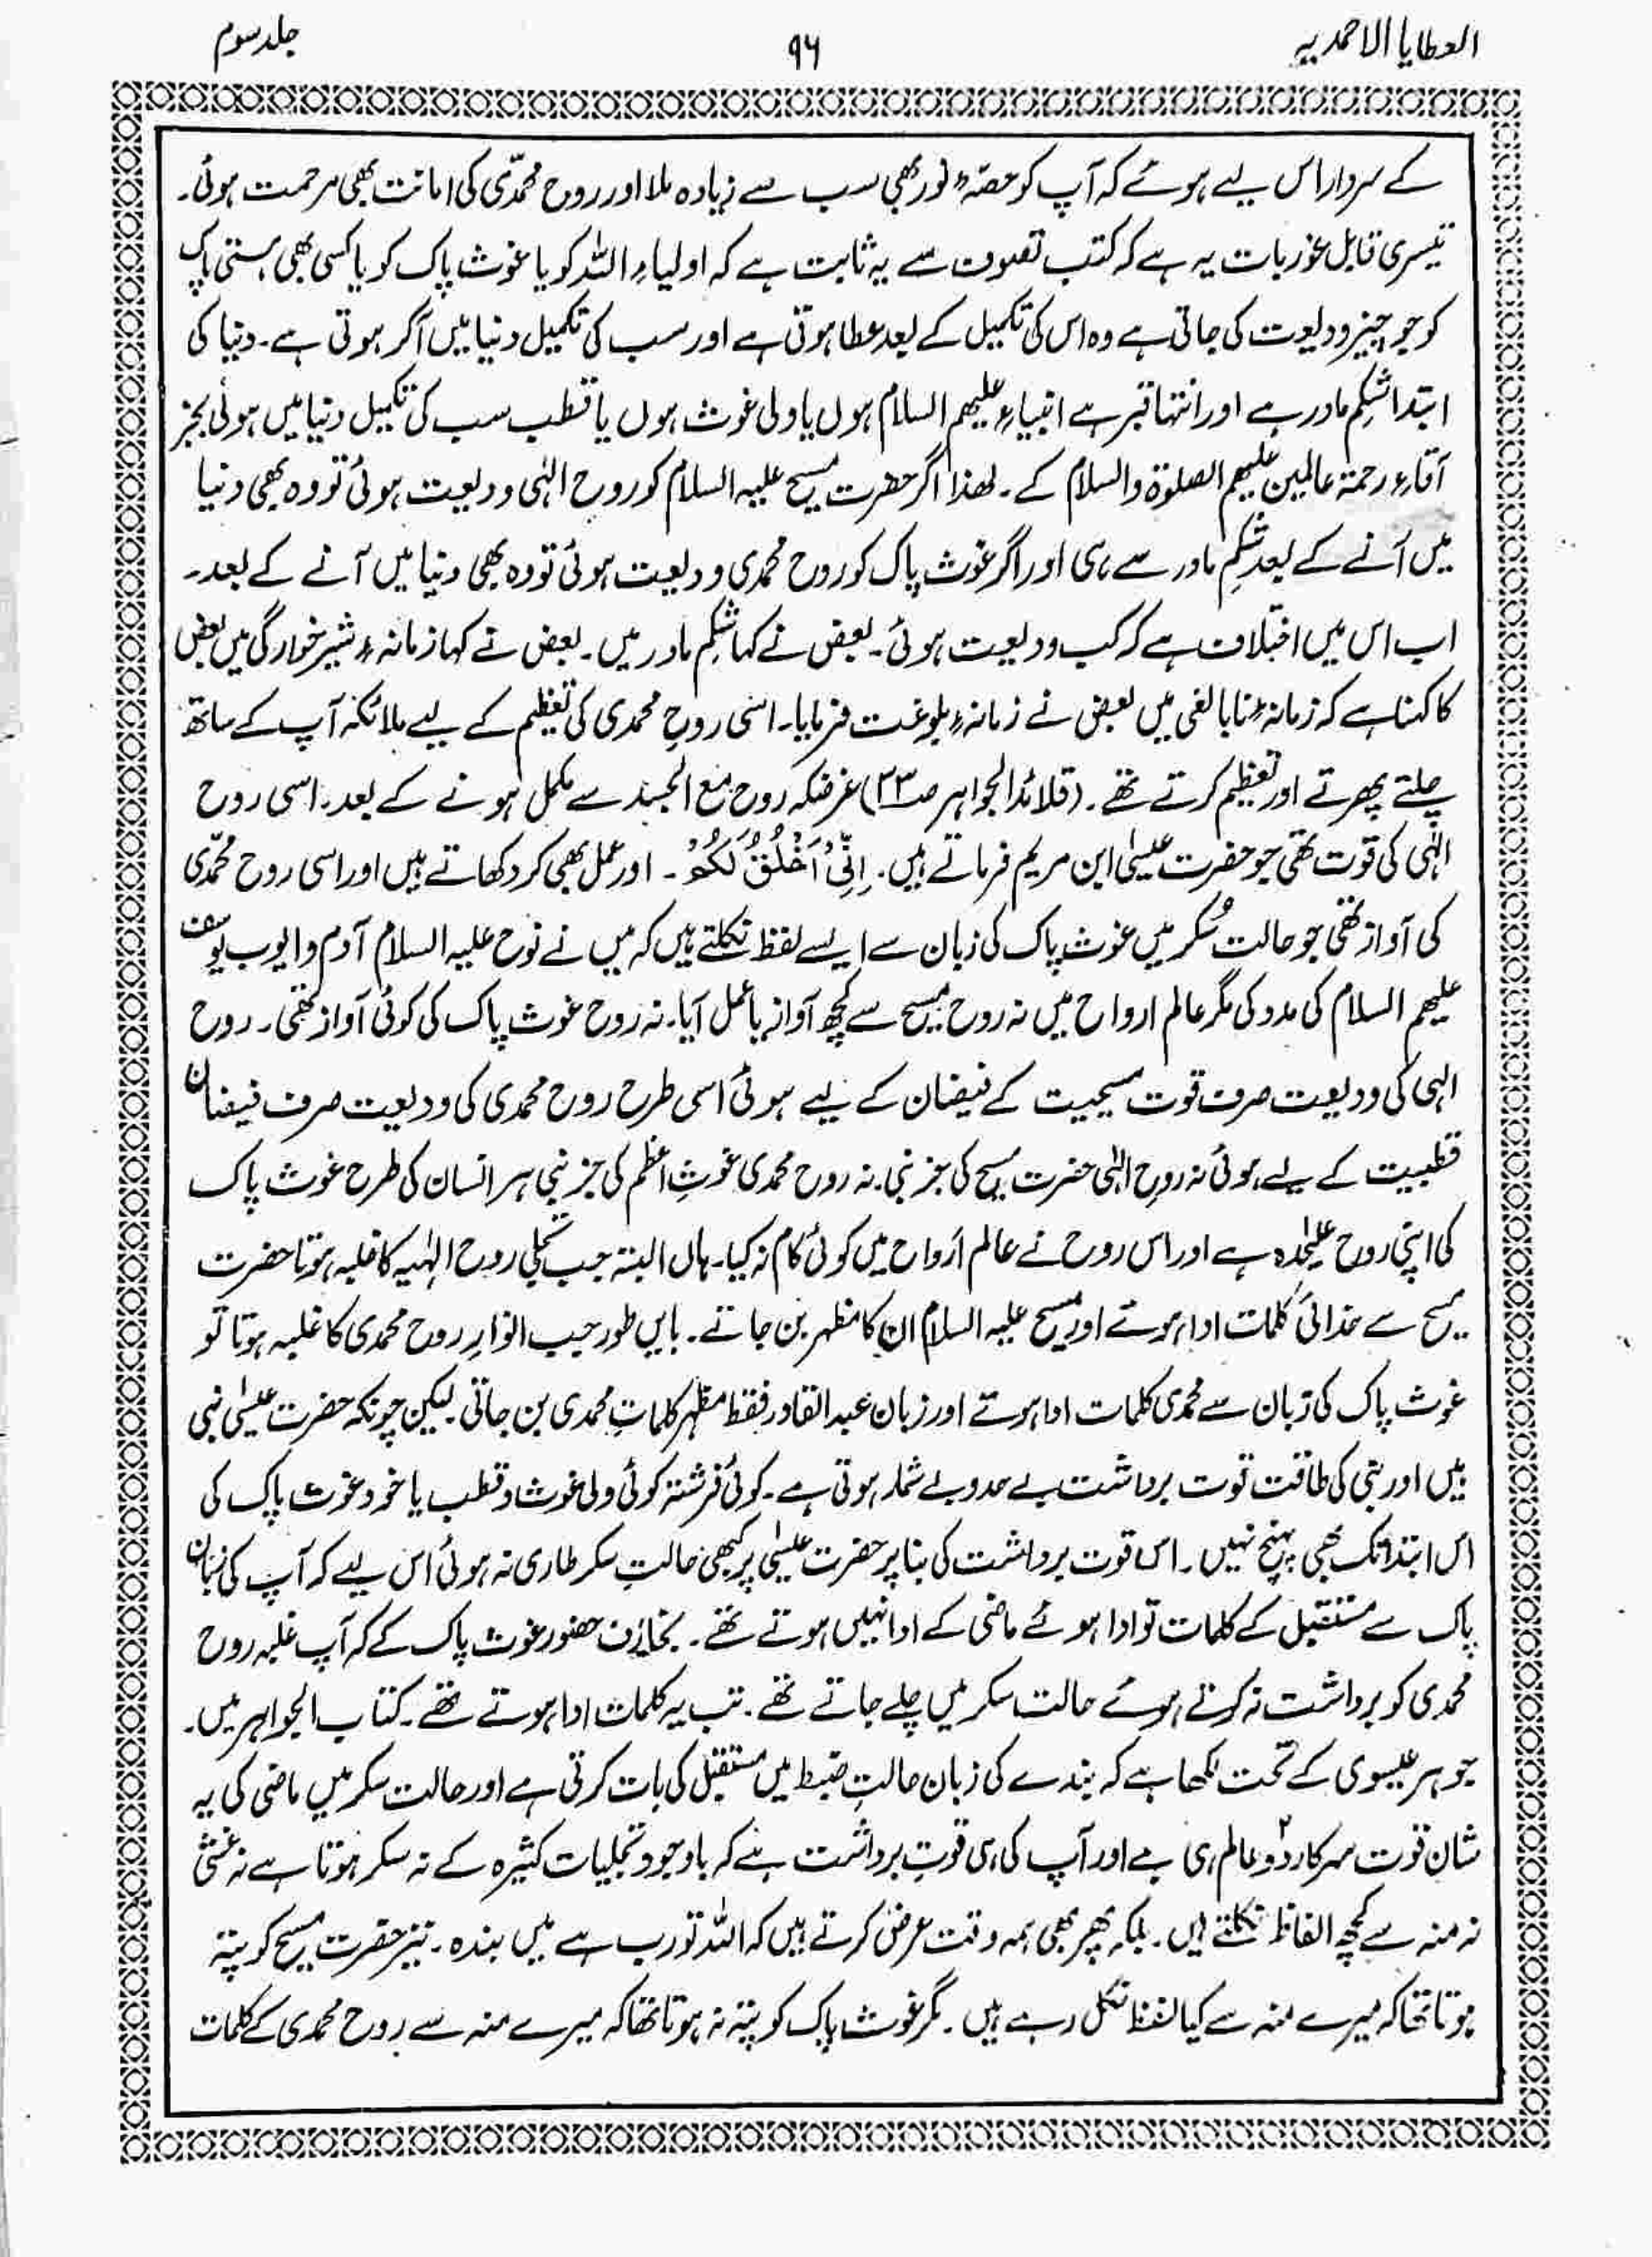 العطایا الاحمدیہ
۹۶
جلد سوم
کے سردار اس لیے ہوئے کہ آپ کو حصہٴ نور بھی سب سے زیادہ ملا اور روح محمّدی کی امانت بھی مرحمت ہوئی۔
تیسری قابل غور بات یہ ہے کہ کتب تصوف سے یہ ثابت ہے کہ اولیاءِ اللہ کو یا غوث پاک کو یا کسی بھی ہستی پاک
کو جو چیز ودیعت کی جاتی ہے وہ اس کی تکمیل کے بعد عطا ہوتی ہے اور سب کی تکمیل دنیا میں آ کر ہوتی ہے۔ دنیا کی
ابتدا شکمِ مادر ہے اور انتہا قبر ہے انبیاءِ علیہم السلام ہوں یا ولی غوث ہوں یا قطب سب کی تکمیل دنیا میں ہوئی بجز
آقاءِ رحمۃ عالمین علیہم الصلوۃ والسلام کے۔ لھذا اگر حضرت مسیح علیہ السلام کو روح الٰہی ودیعت ہوئی تو وہ بھی دنیا
میں آنے کے بعد شکمِ مادر سے ہی اور اگر غوث پاک کو روح محمدی ودیعت ہوئی تو وہ بھی دنیا میں آنے کے بعد۔
اب اس میں اختلاف ہے کہ کب ودیعت ہوئی۔ بعض نے کہا شکمِ مادر میں۔ بعض نے کہا زمانہٴ شیر خوارگی میں بعض
کا کہنا ہے کہ زمانہٴ نابالغی میں بعض نے زمانہٴ بلوغت فرمایا۔ اسی روحِ محمدی کی تعظیم کے لیے ملائکہ آپ کے ساتھ
چلتے پھرتے اور تعظیم کرتے تھے۔ (قلائد الجواہر صـ۳۳) غرضکہ روح مع الجسد سے مکمل ہونے کے بعد۔ اسی روح
الٰہی کی قوت تھی جو حضرت عیسٰی ابن مریم فرماتے ہیں۔ اِنِّیْ اَخْلُقُ لَکُمْ۔ اور عمل بھی کر دکھاتے ہیں اور اسی روح محمّدی
کی آواز تھی جو حالت سُکر میں غوث پاک کی زبان سے ایسے لفظ نکلتے ہیں کہ میں نے نوح علیہ السلام آدم و ایوب یوسف
علیہم السلام کی مدد کی مگر عالم ارواح میں نہ روح مسیح سے کچھ آواز یا عمل آیا۔ نہ روح غوث پاک کی کوئی آواز تھی۔ روح
الٰہی کی ودیعت صرف قوت مسیحیت کے فیضان کے لیے ہوئی اسی طرح روح محمدی کی ودیعت صرف فیضان
قطبیت کے لیے ہوئی نہ روحِ الٰہی حضرت مسیح کی جز بنی۔ نہ روح محمدی غوثِ اعظم کی جز بنی ہر انسان کی طرح غوث پاک
کی اپنی روح علیٰحدہ ہے اور اس روح نے عالم ارواح میں کوئی کام نہ کیا۔ ہاں البتہ جب تجلی روح الٰہیہ کا غلبہ ہوتا حضرت
مسیح سے خدائی کلمات ادا ہوتے اور مسیح علیہ السلام ان کا مظہر بن جاتے۔ بایں طور جب انوارِ روح محمدی کا غلبہ ہوتا تو
غوث پاک کی زبان سے محمدی کلمات ادا ہوتے اور زبان عبد القادر فقط مظہر کلماتِ محمدی بن جاتی۔ لیکن چونکہ حضرت عیسٰی نبی
ہیں اور نبی کی طاقت قوت برداشت بے حد و بے شمار ہوتی ہے۔ کوئی فرشتہ کوئی ولی غوث و قطب یا خود غوث پاک کی
اس ابتدا تک بھی پہنچ نہیں۔ اس قوت برداشت کی بنا پر حضرت عیسٰی پر کبھی حالتِ سکر طاری نہ ہوئی اس لیے کہ آپ کی زبان
پاک سے مستقبل کے کلمات تو ادا ہوئے ماضی کے ادا نہیں ہوتے تھے۔ بخلاف حضور غوث پاک کے کہ آپ غلبہ روح
محمدی کو برداشت نہ کرتے ہوئے حالت سکر میں چلے جاتے تھے۔ تب یہ کلمات ادا ہوتے تھے۔ کتاب الجواہر میں۔
جوہر عیسوی کے تحت لکھا ہے کہ بندے کی زبان حالتِ ضبط میں مستقبل کی بات کرتی ہے اور حالت سکر میں ماضی کی یہ
شان قوت سرکار دو عالم ہی ہے اور آپ کی ہی قوتِ برداشت ہے کہ باوجود تجلیات کثیرہ کے نہ سکر ہوتا ہے نہ غشی
نہ منہ سے کچھ الفاظ نکلتے ہیں۔ بلکہ پھر بھی ہمہ وقت عرض کرتے ہیں کہ اللہ تو رب ہے میں بندہ۔ نیز حضرت مسیح کو پتہ
ہوتا تھا کہ میرے منہ سے کیا لفظ نکل رہے ہیں۔ مگر غوث پاک کو پتہ نہ ہوتا تھا کہ میرے منہ سے روح محمدی کے کلمات